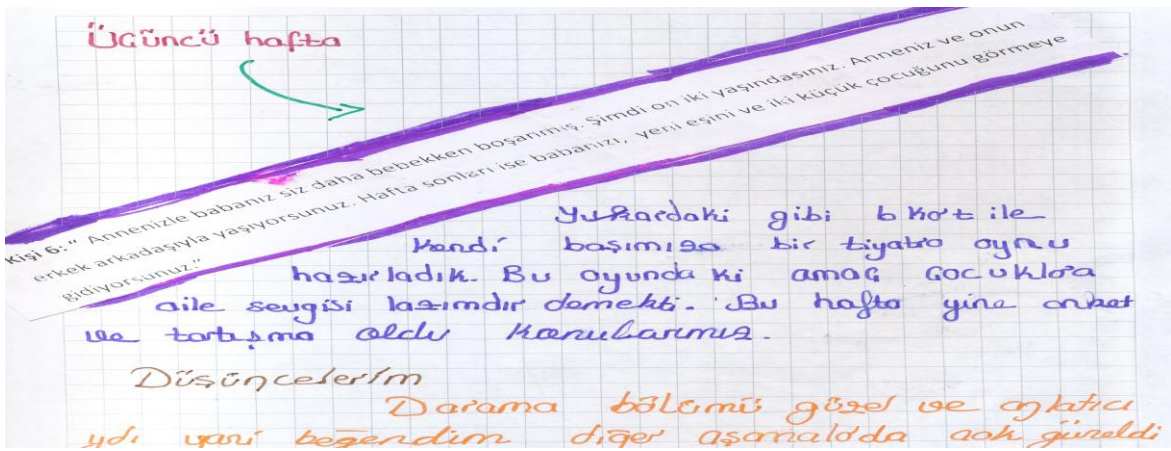 Üçüncü hafta
Kişi 6:" Annenizle babanız siz daha bebekken boşanmış. Şimdi on iki yaşındasınız. Anneniz ve onun
erkek arkadaşıyla yaşıyorsunuz. Hafta sonları ise babanızı, yeni eşini ve iki küçük çocuğunu görmeye
gidiyorsunuz."
Yukardaki gibi 6 kişi ile
kendi başımıza bir tiyatro oyunu
hazırladık. Bu oyunda ki amaç çocuklara
aile sevgisi lazımdır demekti. Bu hafta yine anket
ve tartışma oldu konularımız.
Düşüncelerim
Darama bölümü güzel ve anlatıcı
ydı yani beğendim diğer aşamalarda çok güzeldi